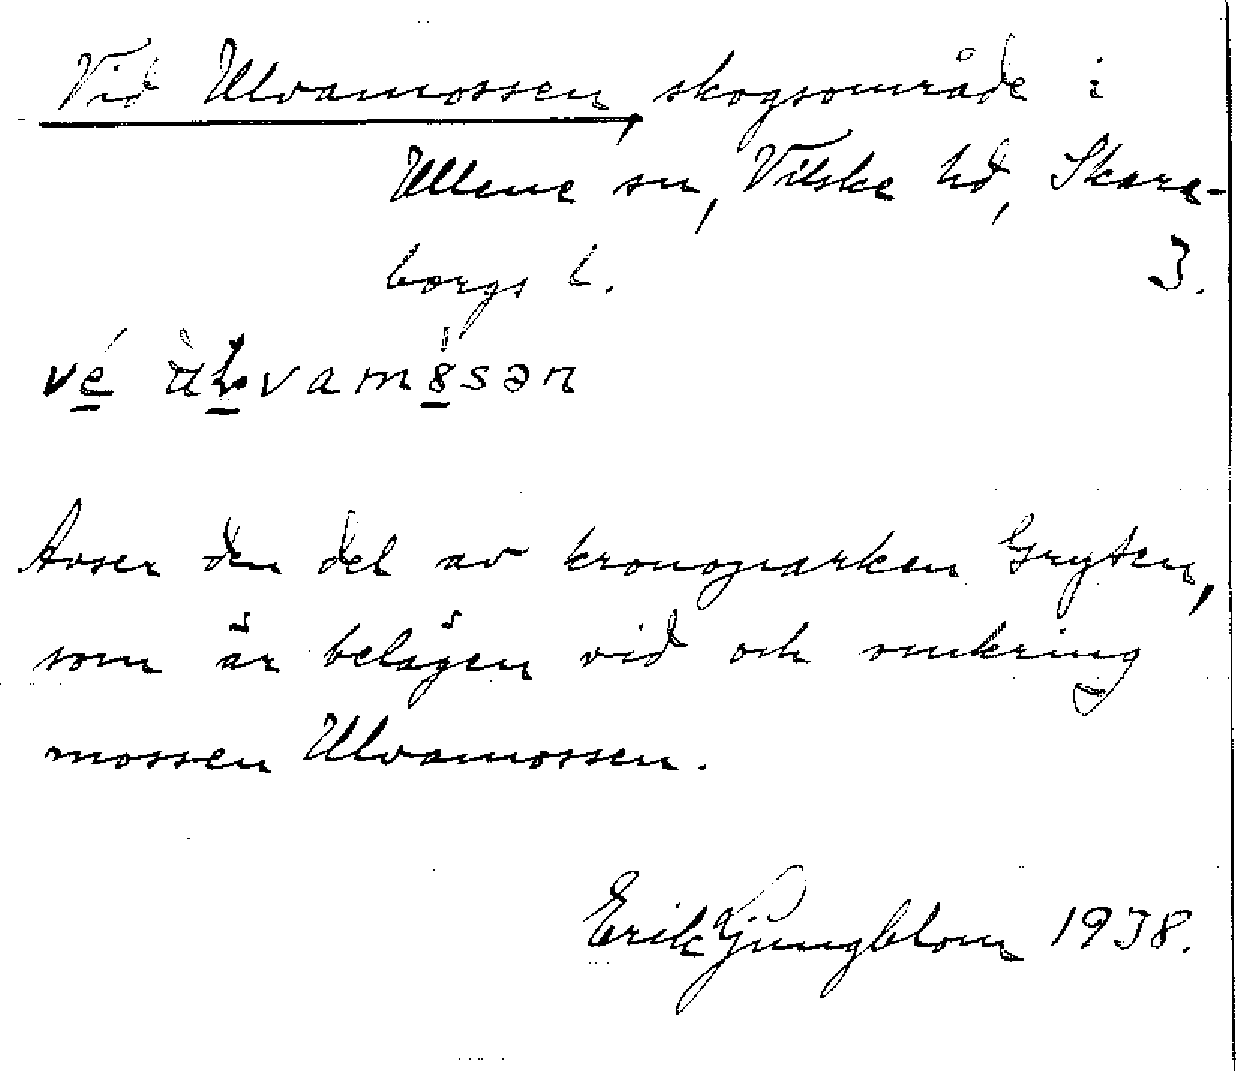 Vid Ulvamossen, skogsområde i
Ullene sn, Vilske hd, Skara-
borgs l. 3.
vé ùlvamósən
Avser den del av kronoparken Gryten,
som är belägen vid och omkring
mossen Ulvamossen.
Erik Ljungblom 1938.